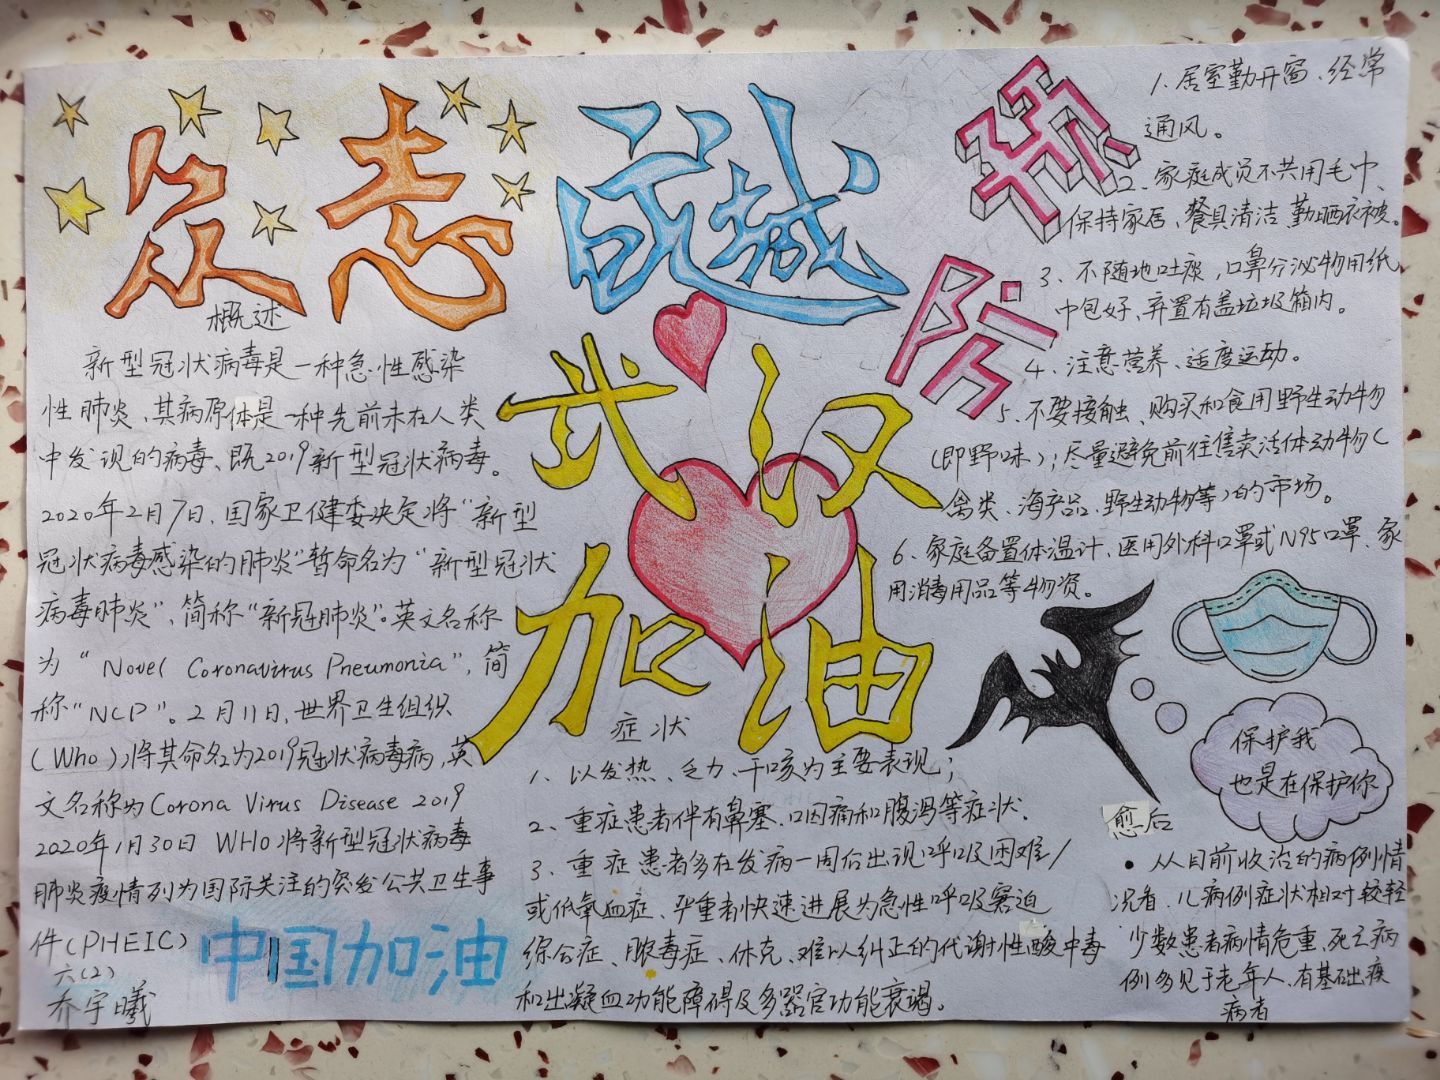 众志成城
武汉
加油
预防
概述
新型冠状病毒是一种急性感染
性肺炎、其病原体是一种先前未在人类
中发现的病毒、既2019新型冠状病毒。
2020年2月7日、国家卫健委决定将“新型
冠状病毒感染的肺炎”暂命名为“新型冠状
病毒肺炎”，简称“新冠肺炎”。英文名称
为“Novel Coronavirus Pneumonia”，简
称“NCP”。2月11日、世界卫生组织
(Who)将其命名为2019冠状病毒病，英
文名称为Corona Virus Disease 2019
2020年1月30日 WHO将新型冠状病毒
肺炎疫情列为国际关注的突发公共卫生事
件(PHEIC)
六(2)
乔宇曦
中国加油
症状
1、以发热、乏力、干咳为主要表现；
2、重症患者伴有鼻塞、口因痛和腹泻等症状、
3、重症患者多在发病一周后出现呼吸困难/
或低氧血症、严重者快速进展为急性呼吸窘迫
综合症、脓毒症、休克、难以纠正的代谢性酸中毒
和出凝血功能障碍及多器官功能衰竭。
1、居室勤开窗、经常
通风。
2、家庭成员不共用毛巾、
保持家居、餐具清洁 勤晒衣被。
3、不随地吐痰，口鼻分泌物用纸
巾包好、弃置有盖垃圾箱内。
4、注意营养、适度运动。
5、不要接触、购买和食用野生动物
(即野味)；尽量避免前往售卖活体动物(
禽类、海产品、野生动物等)的市场。
6、家庭备置体温计、医用外科口罩或N95口罩、家
用消毒用品等物资。
保护我
也是在保护你
愈后
• 从目前收治的病例情
况看、儿病例症状相对较轻
少数患者病情危重、死亡病
例多见于老年人、有基础疾
病者